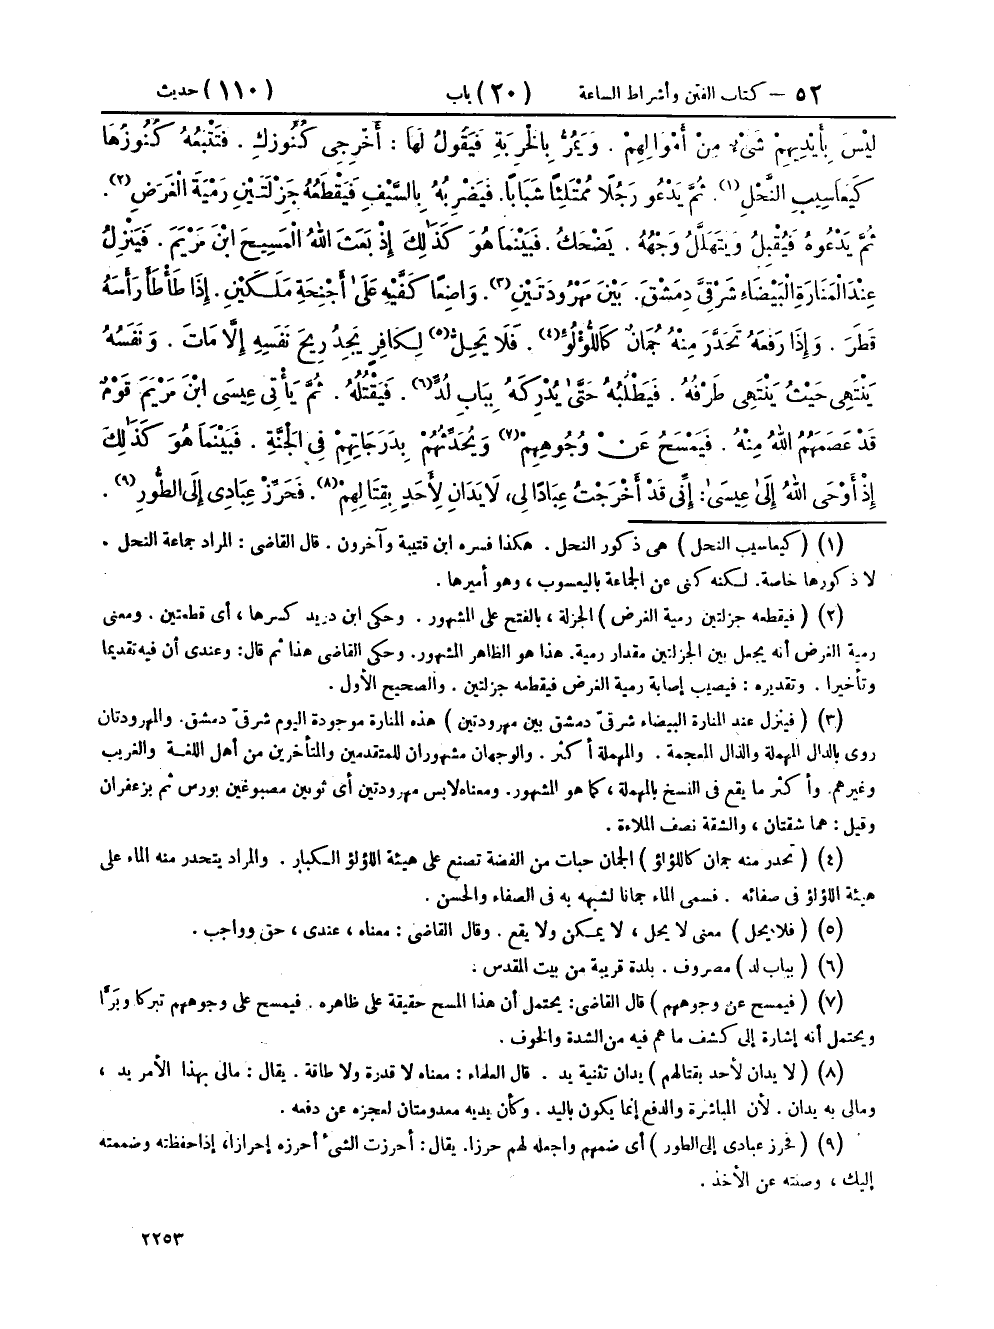 ٥٢ – كتاب الفتن وأشراط الساعة (٢٠) باب (١١٠) حديث
لَيْسَ بِأَيْدِيهِمْ شَىْءٌ مِنْ أَمْوَالِهِمْ . وَيَمُرُّ بِالْخَرِبَةِ فَيَقُولُ لَهَا : أَخْرِجِى كُنُوزَكِ . فَتَتْبَعُهُ كُنُوزُهَا
كَيَعَاسِيبِ النَّحْلِ(١). ثُمَّ يَدْعُو رَجُلًا مُمْتَلِئًا شَبَابًا. فَيَضْرِبُهُ بِالسَّيْفِ فَيَقْطَعُهُ جَزْلَتَيْنِ رَمْيَةَ الْغَرَضِ(٢).
ثُمَّ يَدْعُوهُ فَيُقْبِلُ وَيَتَهَلَّلُ وَجْهُهُ . يَضْحَكُ . فَبَيْنَمَا هُوَ كَذَٰلِكَ إِذْ بَعَثَ اللهُ الْمَسِيحَ ابْنَ مَرْيَمَ . فَيَنْزِلُ
عِنْدَ الْمَنَارَةِ الْبَيْضَاءِ شَرْقِىَّ دِمَشْقَ. بَيْنَ مَهْرُودَتَيْنِ(٣). وَاضِعًا كَفَّيْهِ عَلَىٰ أَجْنِحَةِ مَلَكَيْنِ. إِذَا طَأْطَأَ رَأْسَهُ
قَطَرَ . وَإِذَا رَفَعَهُ تَحَدَّرَ مِنْهُ جُمَانٌ كَاللُّؤْلُؤِ(٤) . فَلَا يَحِلُّ(٥) لِكَافِرٍ يَجِدُ رِيحَ نَفَسِهِ إِلَّا مَاتَ . وَنَفَسُهُ
يَنْتَهِى حَيْثُ يَنْتَهِى طَرْفُهُ . فَيَطْلُبُهُ حَتَّىٰ يُدْرِكَهُ بِبَابِ لُدٍّ(٦) . فَيَقْتُلُهُ . ثُمَّ يَأْتِى عِيسَى ابْنَ مَرْيَمَ قَوْمٌ
قَدْ عَصَمَهُمُ اللهُ مِنْهُ . فَيَمْسَحُ عَنْ وُجُوهِهِمْ(٧) وَيُحَدِّثُهُمْ بِدَرَجَاتِهِمْ فِى الْجَنَّةِ . فَبَيْنَمَا هُوَ كَذَٰلِكَ
إِذْ أَوْحَى اللهُ إِلَىٰ عِيسَىٰ: إِنِّى قَدْ أَخْرَجْتُ عِبَادًا لِى، لَا يَدَانِ لِأَحَدٍ بِقِتَالِهِمْ(٨). فَحَرِّزْ عِبَادِى إِلَى الطُّورِ(٩) .
(١) (كيعاسيب النحل) هى ذكور النحل . هكذا فسره ابن قتيبة وآخرون . قال القاضى : المراد جماعة النحل .
لا ذكورها خاصة. لكنه كنى عن الجماعة باليعسوب ، وهو أميرها .
(٢) (فيقطعه جزلتين رمية الغرض) الجزلة ، بالفتح على المشهور . وحكى ابن دريد كسرها ، أى قطعتين . ومعنى
رمية الغرض أنه يجعل بين الجزلتين مقدار رمية. هذا هو الظاهر المشهور. وحكى القاضى هذا ثم قال: وعندى أن فيه تقديما
وتأخيرا . وتقديره : فيصيب إصابة رمية الغرض فيقطعه جزلتين . والصحيح الأول .
(٣) (فينزل عند المنارة البيضاء شرقىّ دمشق بين مهرودتين) هذه المنارة موجودة اليوم شرقىّ دمشق. والمهرودتان
روى بالدال المهملة والذال المعجمة . والمهملة أكثر . والوجهان مشهوران للمتقدمين والمتأخرين من أهل اللغة والغريب
وغيرهم. وأكثر ما يقع فى النسخ بالمهملة ، كما هو المشهور. ومعناه لابس مهرودتين أى ثوبين مصبوغين بورس ثم بزعفران
وقيل : هما شقتان ، والشقة نصف الملاءة .
(٤) (تحدر منه جمان كاللؤلؤ) الجمان حبات من الفضة تصنع على هيئة اللؤلؤ الكبار . والمراد يتحدر منه الماء على
هيئة اللؤلؤ فى صفائه . فسمى الماء جمانا لشبهه به فى الصفاء والحسن .
(٥) (فلا يحل) معنى لا يحل ، لا يمكن ولا يقع . وقال القاضى : معناه ، عندى ، حق وواجب .
(٦) (بباب لد) مصروف . بلدة قريبة من بيت المقدس .
(٧) (فيمسح عن وجوههم) قال القاضى: يحتمل أن هذا المسح حقيقة على ظاهره . فيمسح على وجوههم تبركا وبَرًّا
ويحتمل أنه إشارة إلى كشف ما هم فيه من الشدة والخوف .
(٨) (لا يدان لأحد بقتالهم) يدان تثنية يد . قال العلماء : معناه لا قدرة ولا طاقة . يقال : مالى بهذا الأمر يد ،
ومالى به يدان . لأن المباشرة والدفع إنما يكون باليد . وكأن يديه معدومتان لعجزه عن دفعه .
(٩) (فحرز عبادى إلى الطور) أى ضمهم واجعله لهم حرزا. يقال: أحرزت الشىء أحرزه إحرازا، إذا حفظته وضممته
إليك ، وصنته عن الأخذ .
٢٢٥٣